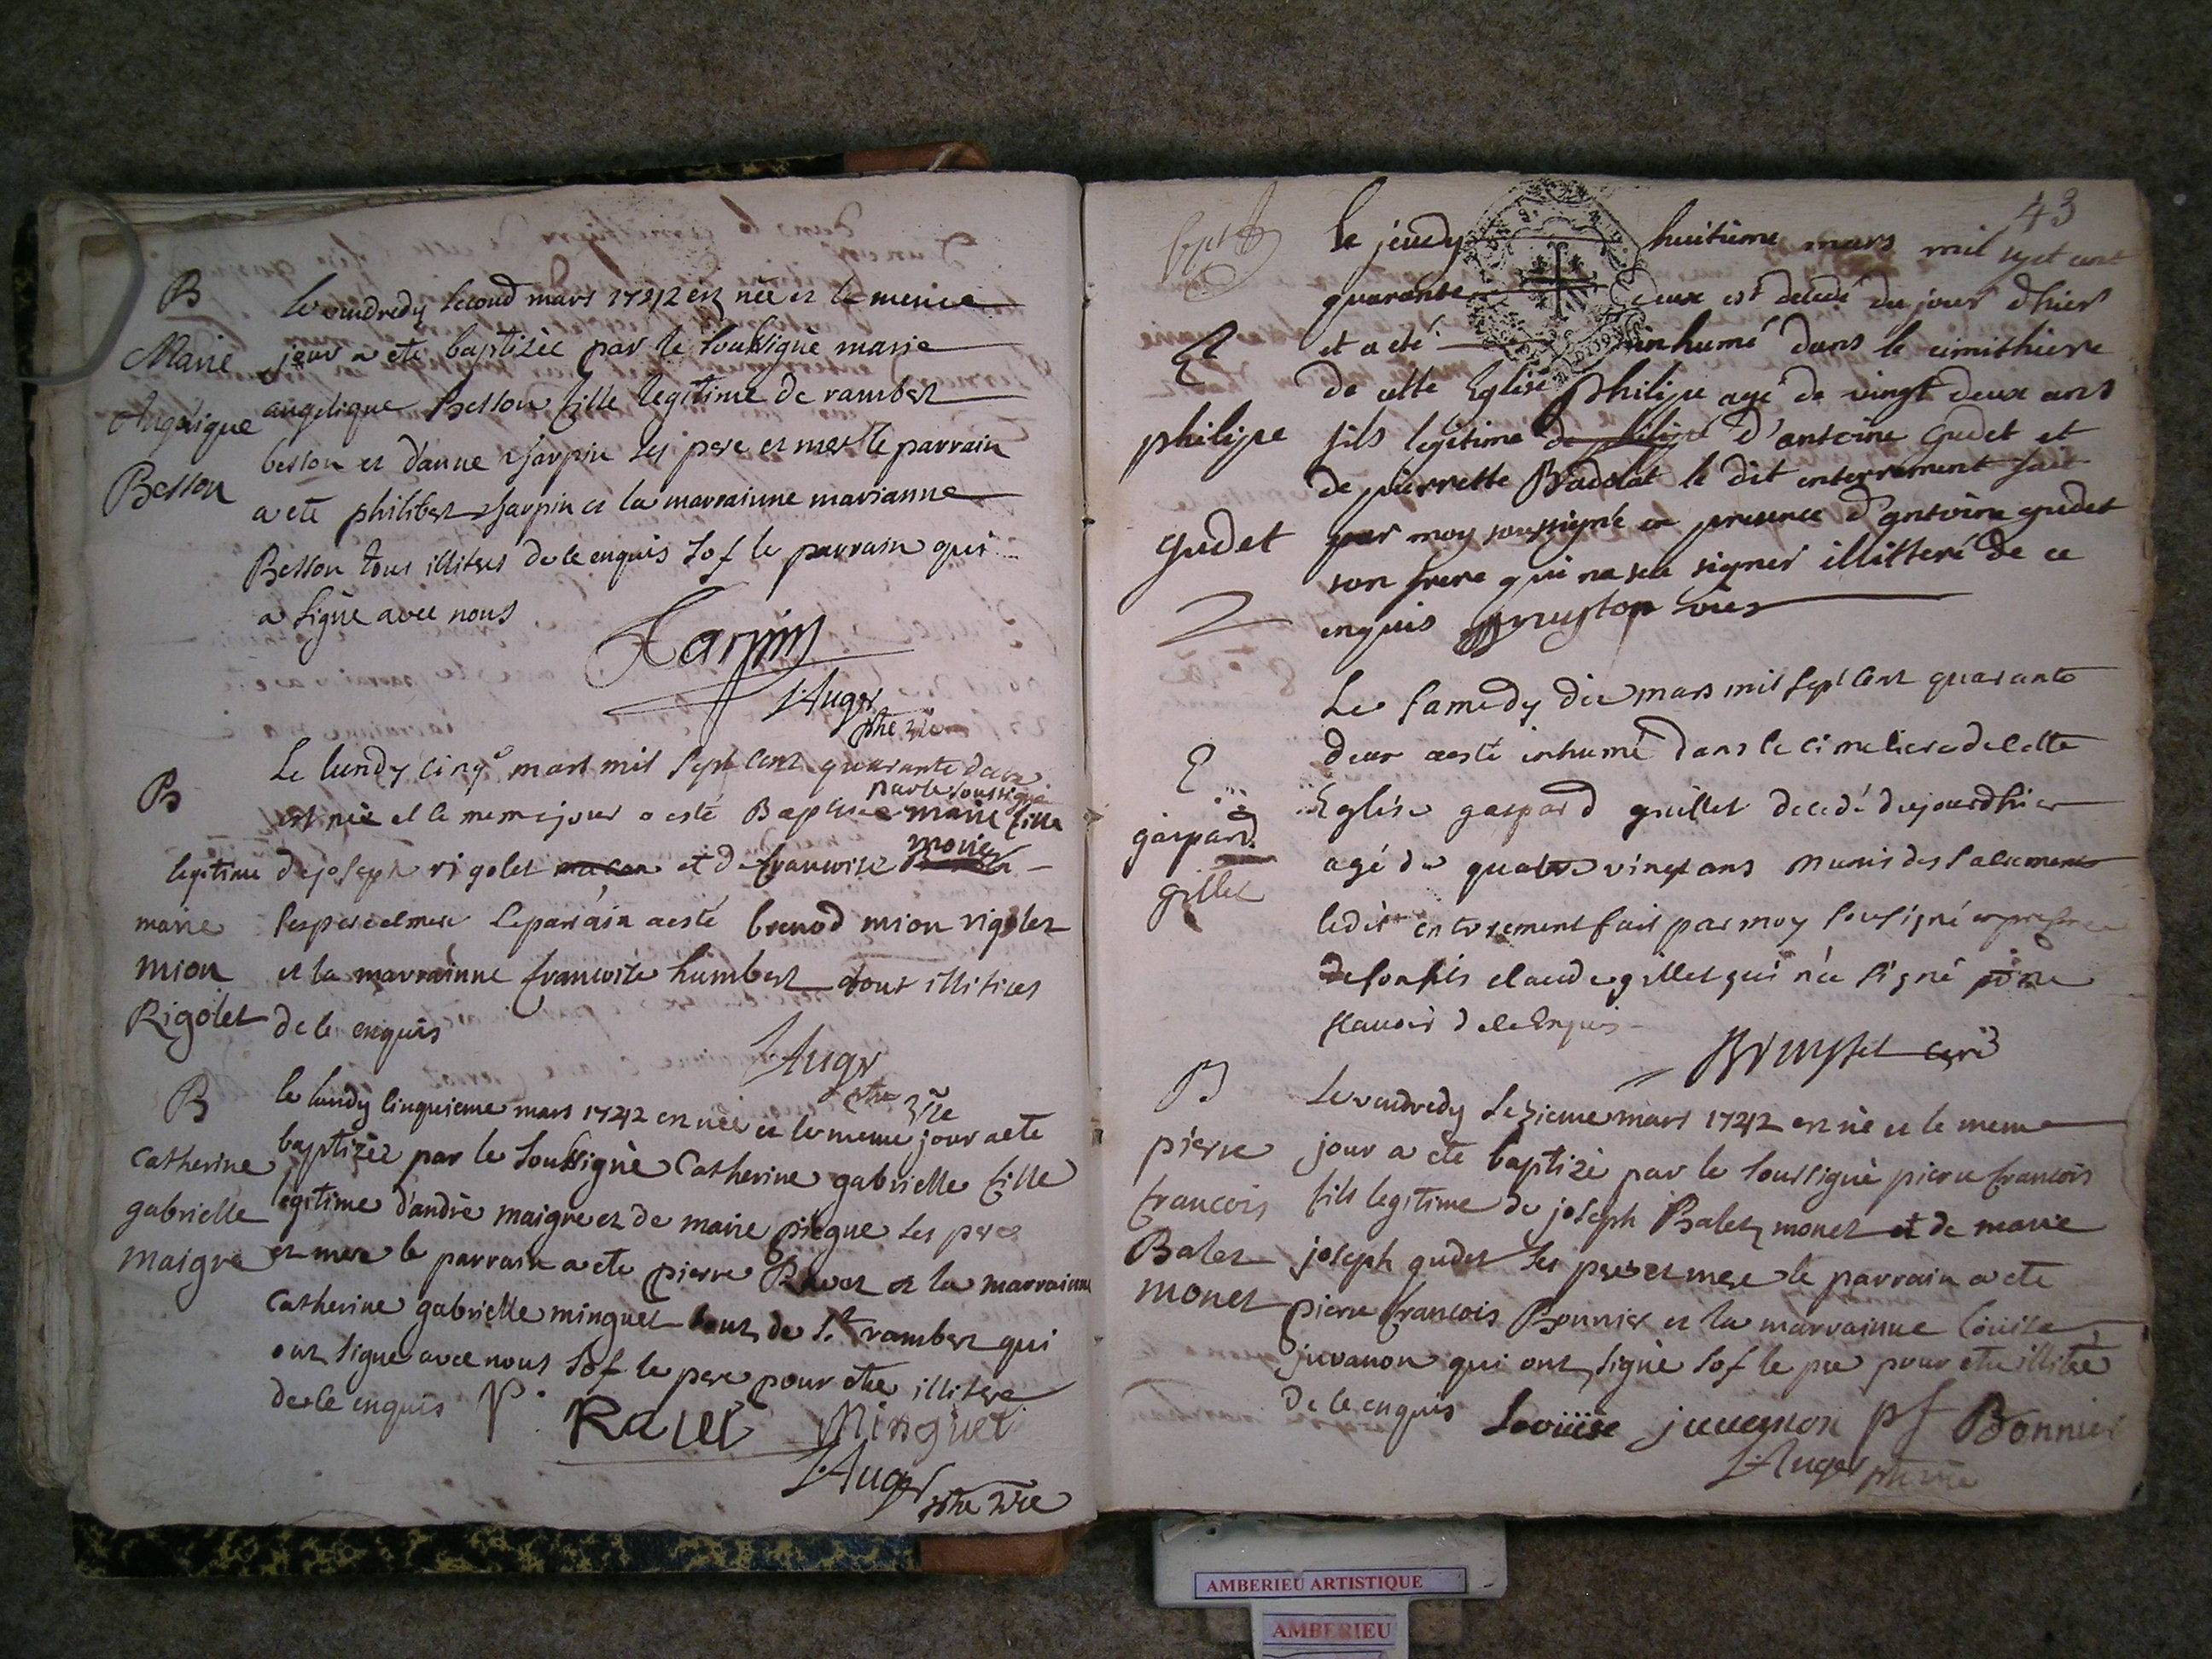 B
Marie
Angelique
Besson
Le vendredy second mars 1742 est née et le meme
jour a ete baptizée par le soussigné marie
angelique Besson fille legitime de rambert
besson et d'anne Jarpin ses pere et mere le parrain
a ete philibert Jarpin et la marrainne marianne
Besson tous illitres de ce enquis sof le parrain qui
a signé avec nous
Jarpin
J. Auger
ptre vre
B
marie
mion
Rigolet
Le lundy cinq.e mars mil sept cent quarante deux
par le soussigné
est née et le meme jour a esté Baptisée marie fille
mion
legitime de joseph rigolet macon et de francoise
ses pere et mere le parrain a esté benod mion rigolet
et la marrainne francoise humbert tout illitires
de ce enquis
J. Auger
ptre vre
B
Catherine
gabrielle
maigre
le lundy cinquieme mars 1742 est née et le meme jour a ete
baptizée par le soussigné Catherine gabrielle fille
legitime d'andré maigre et de marie piegue ses pere
et mere le parrain a ete pierre Ravet et la marrainne
Catherine gabrielle minguet tout de St rambert qui
ont signé avec nous sof le pere pour etre illitere
de ce enquis
P. Ravet Minguet
J. Auger
ptre vre
43
E
philipe
gudet
le jeudy huitieme mars mil sept cent
quarante deux est decedé du jour d'hier
et a eté inhumé dans le cimithiere
de cette Eglise philipe agé de vingt deux ans
fils legitime de philipe d'antoine gudet et
de pierrette Badolat le dit enterrement fait
par moy soussigné en presence d'antoine gudet
son frere qui na seu signer illitteré de ce
enquis
E
gaspard
gillet
Le samedy dix mars mil sept cent quarante
deux a esté inhumé dans le cimetiere de cette
Eglise gaspard guillet decedé du jourd'hier
agé de quatre vingt ans munis des sacrements
ledit enterement fait par moy sousigné en presence
de son fils claude gillet qui n'a signé pour ne
scavoir de ce Enquis
curé
B
pierre
francois
Balet
monet
Le vendredy sezieme mars 1742 est né et le meme
jour a ete baptizé par le soussigné pierre francois
fils legitime de joseph Balet monet et de marie
joseph gudet ses pere et mere le parrain a ete
pierre francois Bonnier et la marrainne Louise
juvanon qui ont signé sof le pere pour etre illitere
de ce enquis
Lovïïse juuenon pf Bonnier
J. Auger ptre vre
AMBERIEU ARTISTIQUE
AMBERIEU